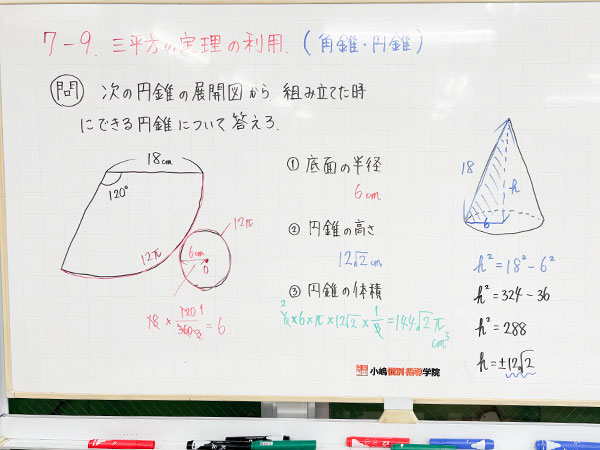 7-9. 三平方の定理の利用. (角錐・円錐)
問 次の円錐の展開図から 組み立てた時
にできる円錐について答えろ.
18cm
120°
12π
12π
6cm
O
18 × 120 1/360 3 = 6
① 底面の半径
6cm
② 円錐の高さ
12√2 cm
③ 円錐の体積
2
6×6×π×12√2×1/3=144√2π cm³
18
h
6
h²=18²-6²
h²=324-36
h²=288
h=±12√2
小嶋個別指導学院